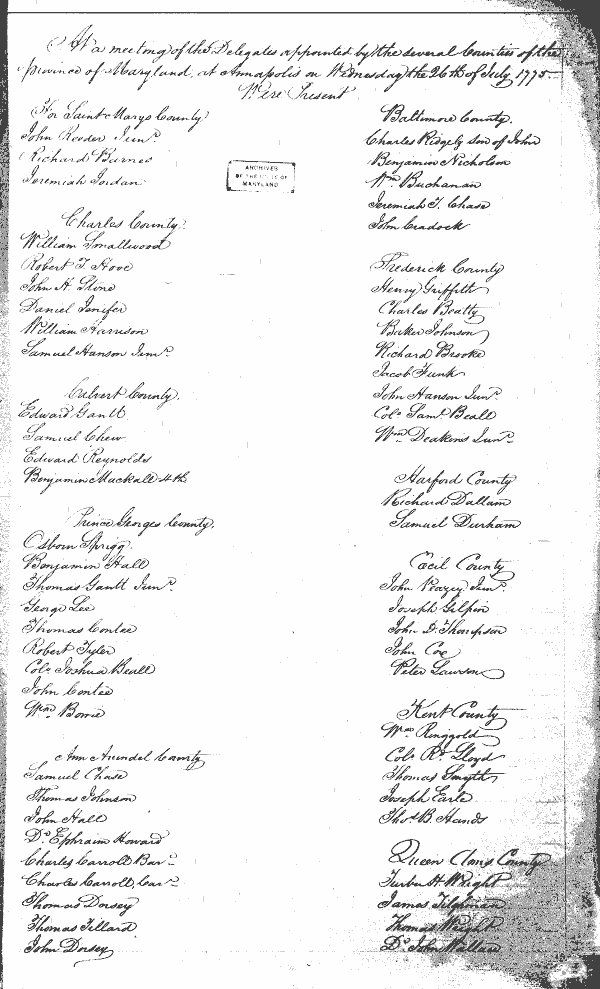 At a meeting of the Delegates appointed by the several Counties of the
Province of Maryland, at Annapolis on Wednesday the 26th of July 1775.
Were Present
For Saint Marys County
John Reeder Junr.
Richard Barnes
Jeremiah Jordan
Charles County.
William Smallwood
Robert T. Hooe
John H. Stone
Daniel Jenifer
William Harrison
Samuel Hanson Junr.
Calvert County.
Edward Gantt
Samuel Chew
Edward Reynolds
Benjamin Mackall 4th
Prince Georges County.
Osborn Sprigg.
Benjamin Hall
Thomas Gantt Junr.
George Lee
Thomas Contee
Robert Tyler
Colo. Joshua Beall
John Contee
Wm. Bowie
Ann Arundel County
Samuel Chase
Thomas Johnson
John Hall
Dr. Ephraim Howard
Charles Carroll Barr.
Charles Carroll, Carr.
Thomas Dorsey
Thomas Tillard
John Dorsey
ARCHIVES
OF THE STATE OF
MARYLAND
Baltimore County.
Charles Ridgely son of John
Benjamin Nicholson
Wm. Buchanan
Jeremiah T. Chase
John Cradock
Frederick County
Henry Griffith
Charles Beatty
Baker Johnson
Richard Brooke
Jacob Funk
John Hanson Junr.
Colo. Saml. Beall
Wm. Deakens Junr.
Harford County
Richard Dallam
Samuel Durham
Cecil County
John Veazey Junr.
Joseph Gilpin
John D. Thompson
John Cox
Peter Lawson
Kent County
Wm. Ringgold
Colo. Rd. Lloyd
Thomas Smyth
Joseph Earle
Thos. B. Hands
Queen Anns County
Turbutt Wright
James Tilghman
Thomas Wright
Dr. John Wallace